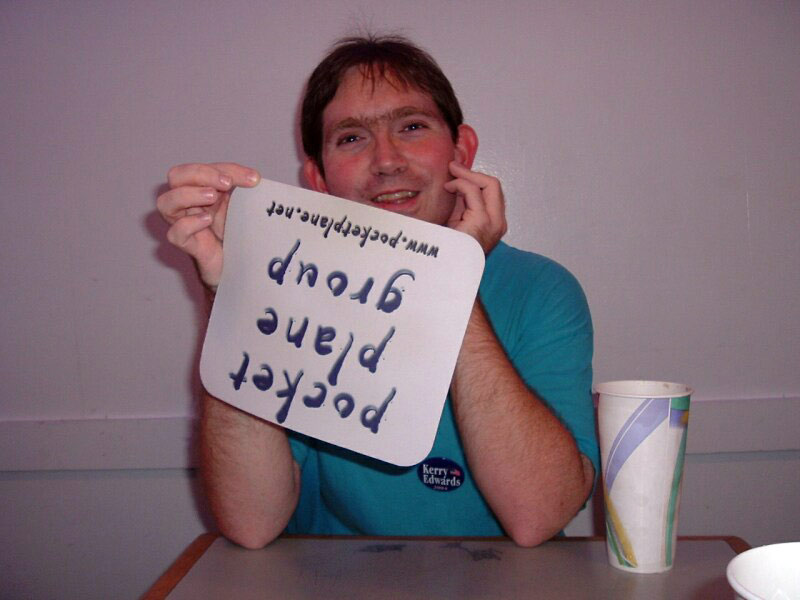 pocket
plane
group
www.pocketplane.net
Kerry
Edwards